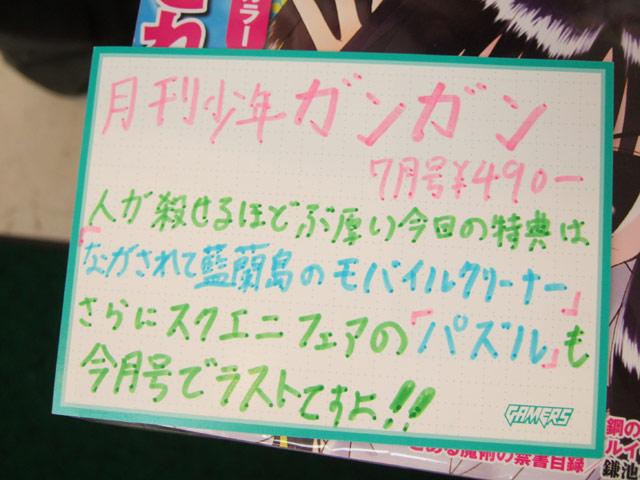 カラー
月刊少年ガンガン
7月号¥490ー
人が殺せるほどぶ厚い今回の特典は
「ながされて藍蘭島のモバイルクリーナー」
さらにスクエニフェアの「パズル」も
今月号でラストですよ!!
GAMERS
鋼の
とある魔術の禁書目録
鎌池